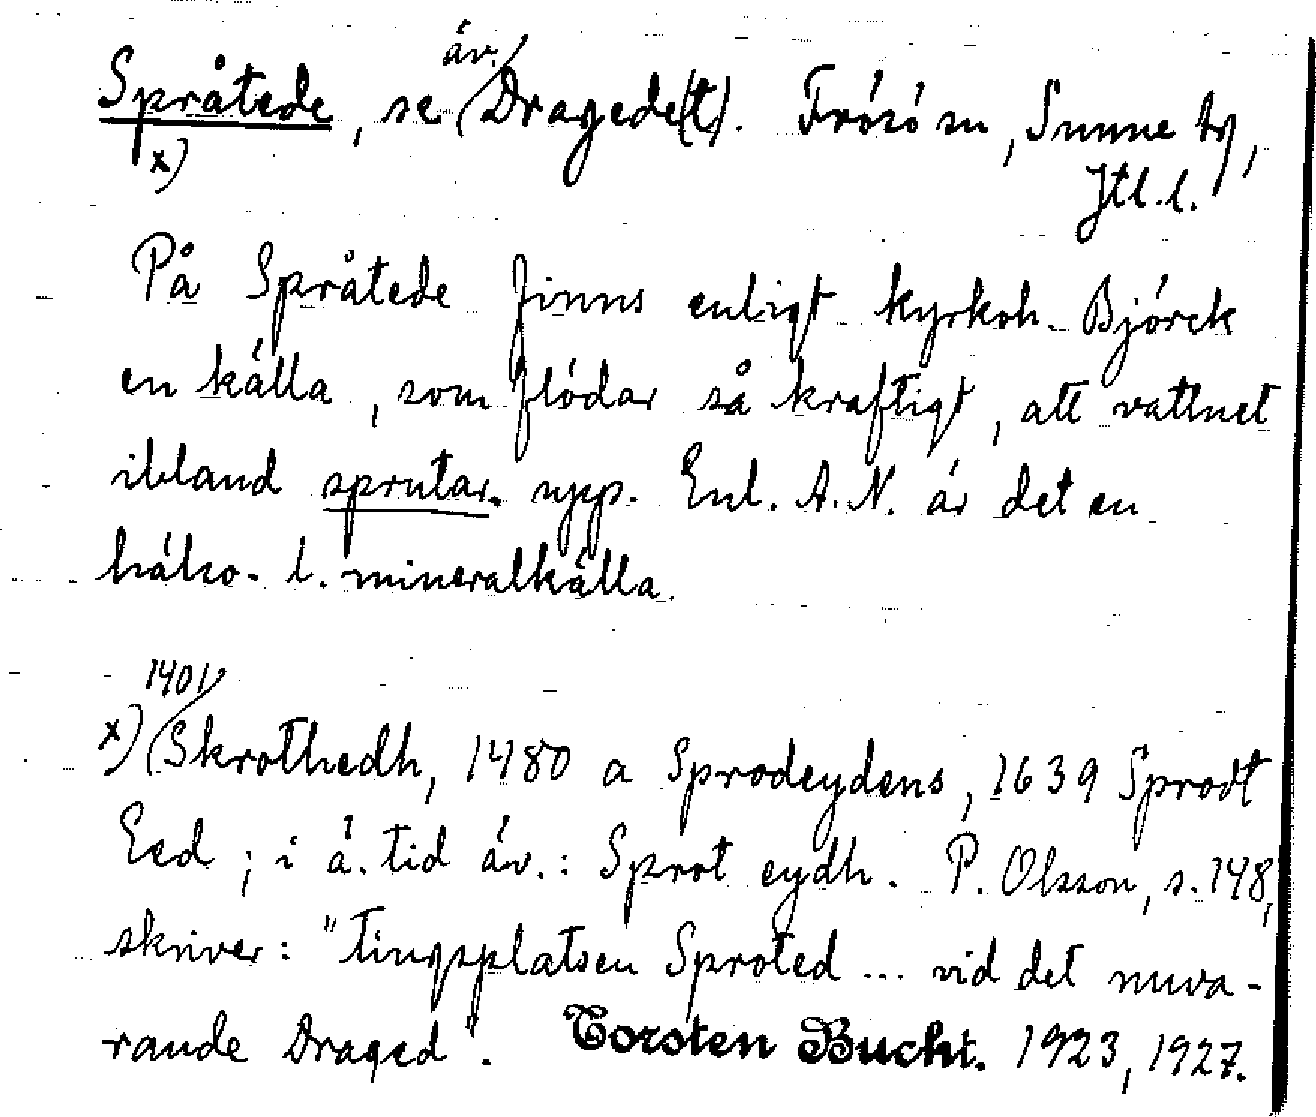 Språtede, se äv. Dragede(t). Frösö sn, Sunne tg,
x)
Jtl. l.
På Språtede finns enligt kyrkoh. Björck
en källa, som flödar så kraftigt, att vattnet
ibland sprutar upp. Enl. A.N. är det en
hälso- l. mineralkälla.
x) 1401 Skrothedh, 1480 a Sprodeydens, 1639 Sprodt
Eed; i ä. tid äv.: Sprot eydh. P. Olsson, s. 148,
skriver: "Tingsplatsen Sproted ... vid det nuva-
rande Draged". Torsten Bucht. 1923, 1927.